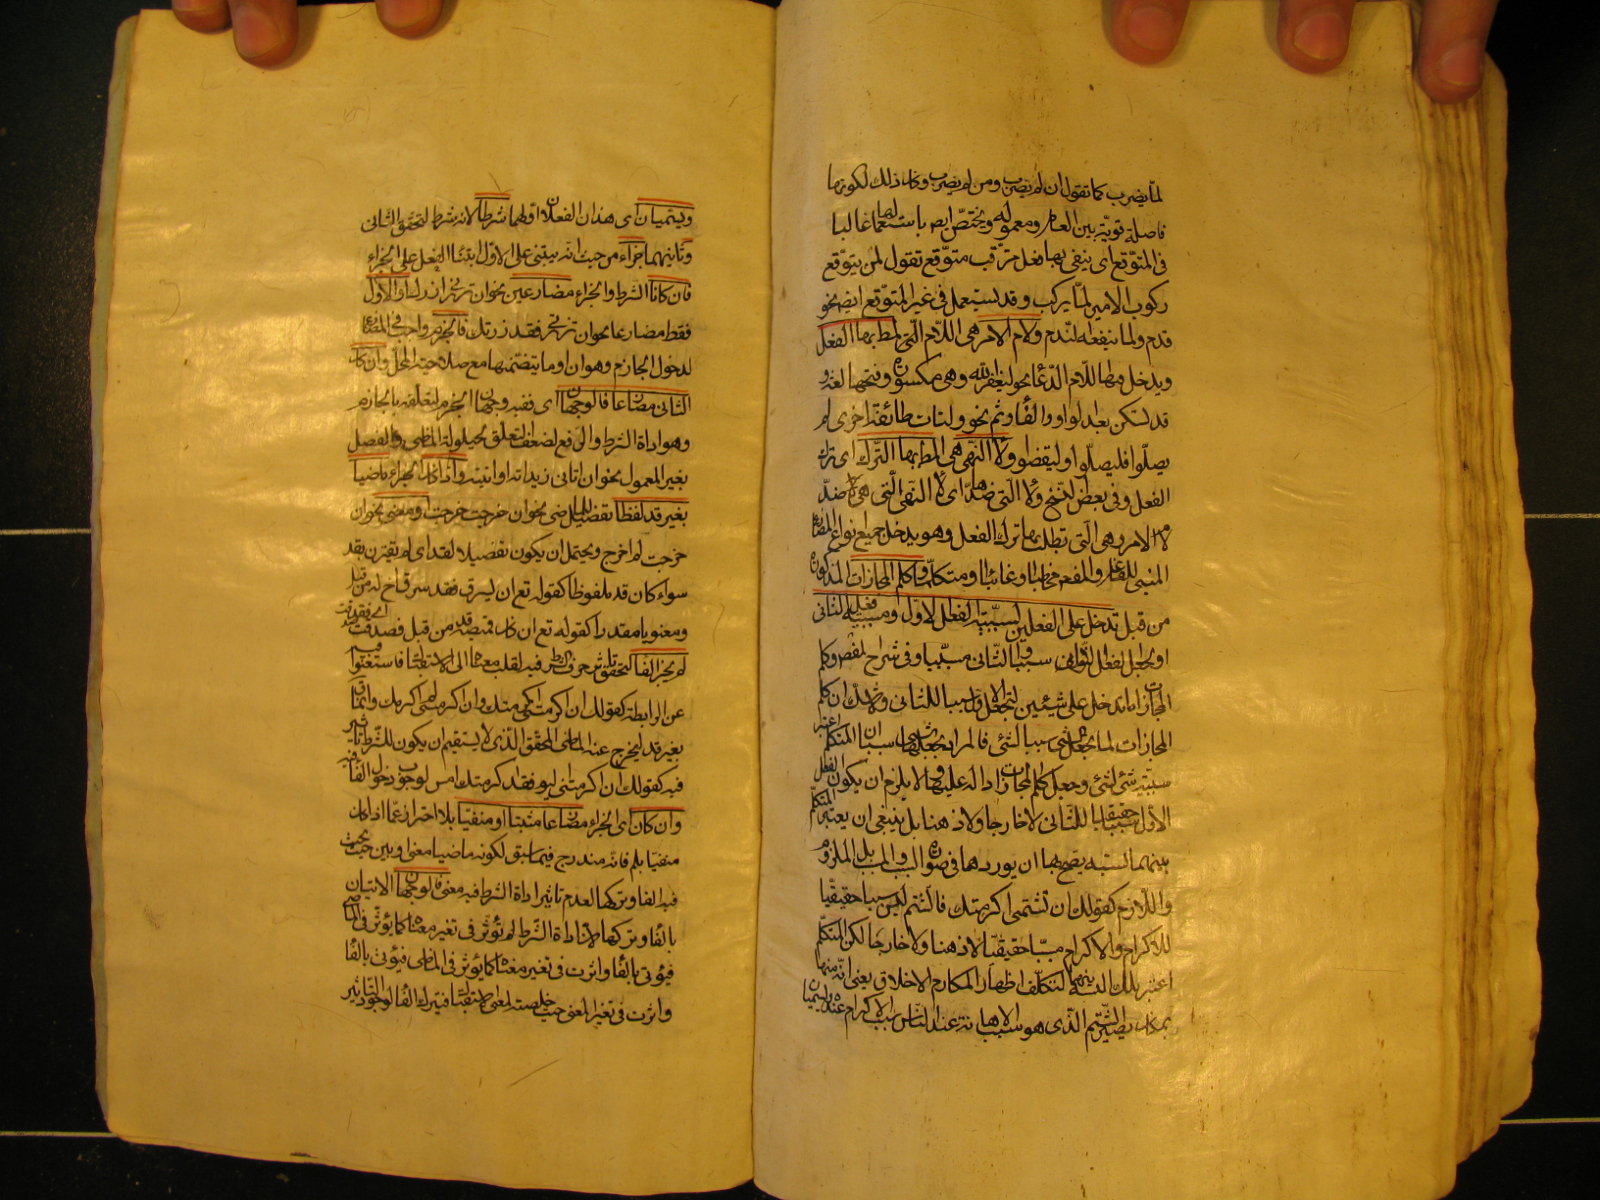 لمّا يضرب كما تقول ان لم يضرب ومن لم يضرب وكان ذلك لكونها
فاصلة قويّة بين العامل ومعموله ويختصّ ايضا باستعمالها غالبا
فى المتوّقع اى ينفى بها فعل مترقب متوّقع تقول لمن يتوّقع
ركوب الامير لمّا يركب وقد يستعمل فى غير المتوّقع ايضا نحو
ندم ولما ينفعه الندم ولام الامر هى اللام التى يطلب بها الفعل
ويدخل فيها لام الدّعا نحو ليغفر الله وهى مكسورة وفتحها لغة و
قد تسكن بعد الواو والفا وثم نحو ولتات طائفة اخرى لم
يصلّوا فليصلّوا وثم ليقضوا ولا النّهى هى المطلوب بها الترك اى ترك
الفعل وفى بعض النسخ ولا النهى ضدها اى لا النهى التى هى ضدّ
لام الامر وهى الّتى يطلب بها ترك الفعل وهو يدخل جميع انواع المضارع
المبنى للفاعل والمفعول مخاطبا وغائبا ومتكلّما وكلم المجازات المذكورة
من قبل تدخل على الفعلين لسببيّة الفعل الاول ومسببيّة الفعل الثانى
اى تجعل الفعل الاوّل سببا والثّانى مسبّبا وفى شرح المفصل وكلم
المجازات ما تدخل على شيئين لتجعل الاول سببا للثانى ولا شك ان كلم
المجازات لا تجعل الشى سببا لشئ فالمراد بجعلها الشئ سببا ان المتكلم اعتبر
سببيّة شئ لشئ وجعل كلم المجازات دالة عليها ولا يلزم ان يكون الفعل
الاول سببا حقيقيا للثّانى لا خارجا ولا ذهنا بل ينبغى ان يعتبر المتكلم
بينهما نسبة يصحّ بها ان يوردهما فى صورة السبب والمسبب بل الملزوم
واللّازم كقولك ان تشتمنى اكرمتك فالشتم ليس سببا حقيقيّا
للاكرام والاكرام مسبّبا حقيقيّا لا ذهنا ولا خارجا لكن المتكلّم
اعتبر تلك النسبة بينهما اظهارا لمكارم الاخلاق يعنى انّه منها
بمكان يصير الشّتم الّذى هو سبب الاهانة عند النّاس سبب الاكرام عنده
ويسميان اى هذان الفعلان اوّلهما شرطا لانه شرط لتحقق الثانى
وثانيهما جزاء من حيث انه يبتنى على الاوّل ابتناء الفعل على الجزاء
فان كانا الشرط والجزاء مضارعين نحو ان تزرنى ازرك او الاول
فقط مضارعا نحو ان تزرنى فقد زرتك فالجزم واجب فى المضارع
لدخول الجازم وهو ان او ما يتضمنها مع صلاحيّة المحلّ وان كان
الثانى مضارعا فالوجهان اى ففيه وجهان الجزم لتعلقه بالجازم
وهو اداة الشرط والرفع لضعف التعلق لحيلولة الماضى والفصل
بغير المعمول نحو ان اتانى زيد اته او اتيه واذا كان الجزاء ماضيا
بغير قد لفظا تفصيل للماضى نحو ان خرجت خرجت او معنى نحو ان
خرجت لم اخرج ويحتمل ان يكون تفصيلا لقد اى لم يقترن بقد
سواء كان قد ملفوظا كقوله تع ان يسرق فقد سرق اخ له من قبل
او معنويا مقدرا كقوله تع ان كان قميصه قد من قبل فصدقت اى فقد صدقت
لم يجز الفا لتحقق تاثير حرف الشرط فيه لقلب معناه الى الاستقبال فاستغنوا فيه
عن الرابطة كقولك ان اكرمتنى اكرمتك وان اكرمتنى لم اكرمك وانما قال
بغير قد ليخرج عنه الماضى المحقق الّذى لا يستقيم ان يكون للشّرط تاثير
فيه كقولك ان اكرمتنى اليوم فقد اكرمتك امس لوجوب دخول الفا فيه
وان كان اى الجزاء مضارعا مثبتا او منفيّا بلا احتراز عمّا اذا كان
منفيّا بلم فانّه مندرج فيما سبق لكونه ماضيا معنى وبين حيث
فيه الفا وتركها لعدم تاثير اداة الشرط فيه معنى فالوجهان الاتيان
بالفا وتركها لان اداة الشّرط لم تؤثّر فى تغيير معناه كما يؤثّر فى الماضى
فيؤتى بالفا واثرت فى تغير معناه كما يؤثر فى الماضى فيؤتى بالفا
واثرت فى تغير المعنى حيث خلصته لمعنى الاستقبال فيترك الفا لوجود التاثير